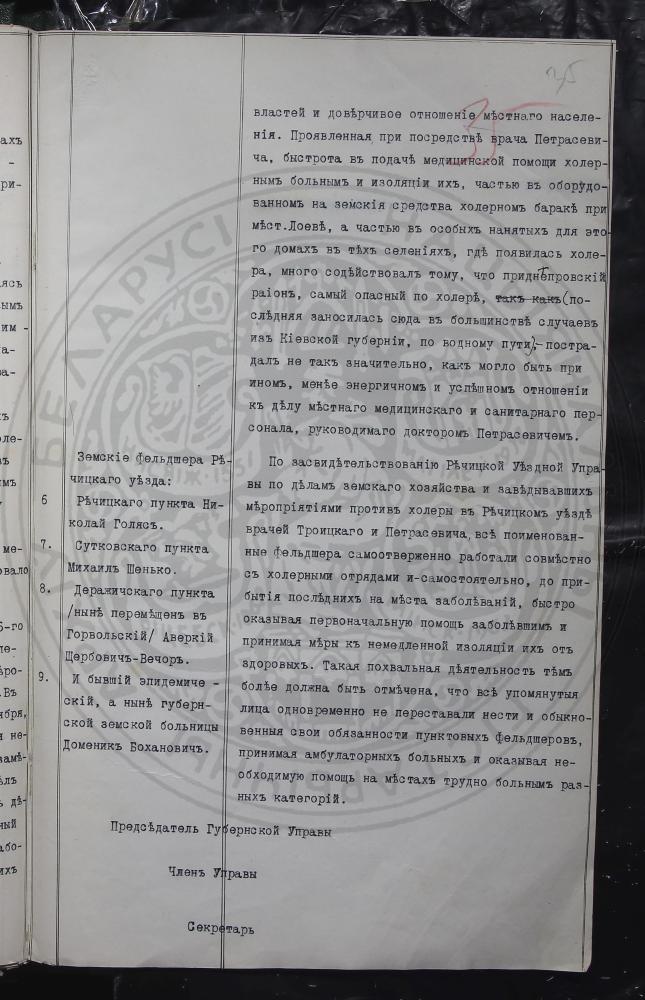 35
35
властей и довѣрчивое отношеніе мѣстнаго населе-
нія. Проявленная при посредствѣ врача Петрасеви-
ча, быстрота въ подачѣ медицинской помощи холер-
нымъ больнымъ и изоляціи ихъ, частью въ оборудо-
ванномъ на земскія средства холерномъ баракѣ при
мѣст.Лоевѣ, а частью въ особыхъ нанятыхъ для это-
го домахъ въ тѣхъ селеніяхъ, гдѣ появилась холе-
ра, много содѣйствовалъ тому, что приднѣпровскій
раіонъ, самый опасный по холерѣ, такъ какъ (по-
слѣдняя заносилась сюда въ большинствѣ случаевъ
изъ Кіевской губерніи, по водному пути),-постра-
далъ не такъ значительно, какъ могло быть при
иномъ, менѣе энергичномъ и успѣшномъ отношеніи
къ дѣлу мѣстнаго медицинскаго и санитарнаго пер-
сонала, руководимаго докторомъ Петрасевичемъ.
Земскіе Фельдшера Рѣ-
чицкаго уѣзда:
6 Рѣчицкаго пункта Ни-
колай Голясъ.
7. Сутковскаго пункта
Михаилъ Шенько.
8. Деражичскаго пункта
/нынѣ перемѣщенъ въ
Горвольскій/ Аверкій
Щербовичъ-Вечоръ.
9. И бывшій эпидемиче -
скій, а нынѣ губерн-
ской земской больницы
Доменикъ Бохановичъ.
По засвидѣтельствованію Рѣчицкой Уѣздной Упра-
вы по дѣламъ земскаго хозяйства и завѣдывавшихъ
мѣропріятіями противъ холеры въ Рѣчицкомъ уѣздѣ
врачей Троицкаго и Петрасевича, всѣ поименован-
ные Фельдшера самоотверженно работали совмѣстно
съ холерными отрядами и-самостоятельно, до при-
бытія послѣднихъ на мѣста заболѣваній, быстро
оказывая первоначальную помощь заболѣвшимъ и
принимая мѣры къ немедленной изоляціи ихъ отъ
здоровыхъ. Такая похвальная дѣятельность тѣмъ
болѣе должна быть отмѣчена, что всѣ упомянутыя
лица одновременно не переставали нести и обыкно-
венныя свои обязанности пунктовыхъ фельдшеровъ,
принимая амбулаторныхъ больныхъ и оказывая не-
обходимую помощь на мѣстахъ трудно больнымъ раз-
ныхъ категорій.
Предсѣдатель Губернской Управы
Членъ Управы
Секретарь